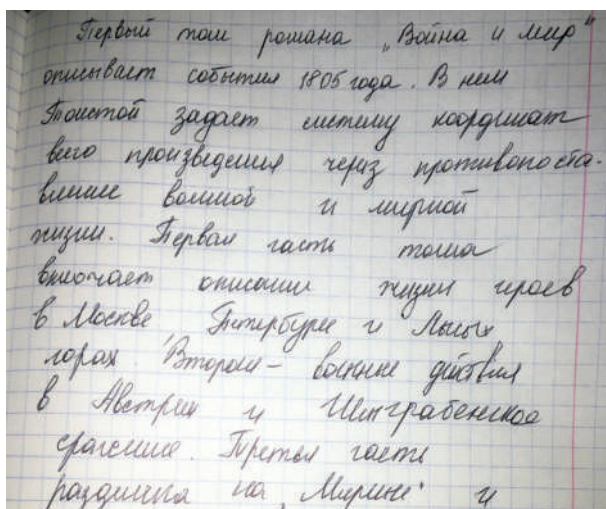 Первый том романа „Война и мир"
описывает события 1805 года. В нем
Толстой задает систему координат
всего произведения через противопоста-
вление военной и мирной
жизни. Первая часть тома
включает описание жизни героев
в Москве, Петербурге и Лысых
горах. Вторая – военные действия
в Австрии и Шенграбенское
сражение. Третья часть
разделена на „Мирные" и